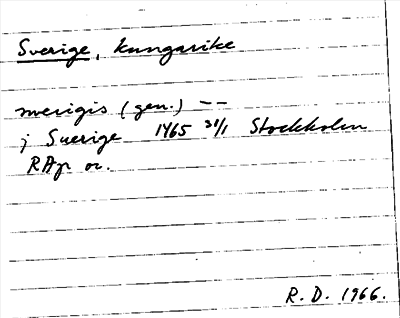 Sverige, kungarike
swerigis (gen.) --
j Swerige 1465 31/1 Stockholm
RAp or.
R. D. 1966.